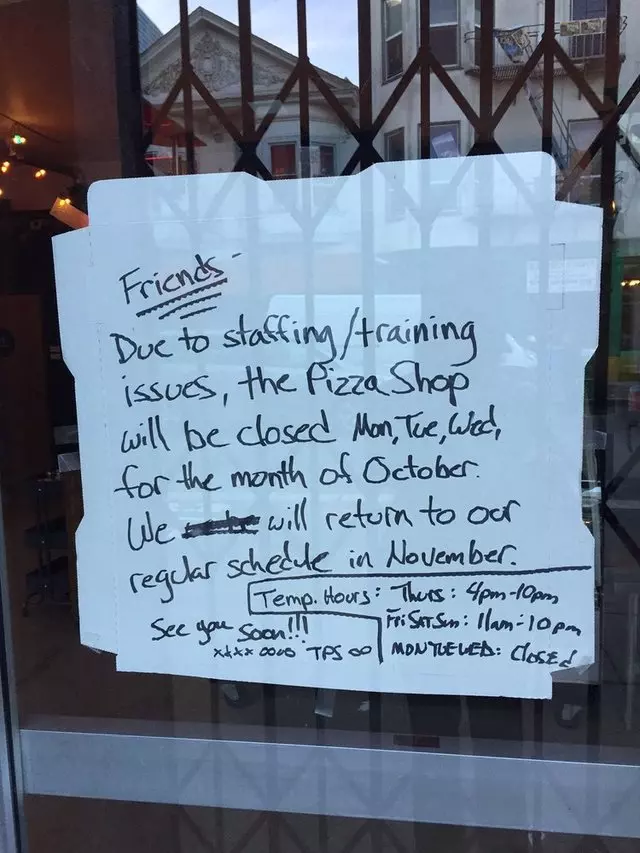 Friends-
Due to staffing/training
issues, the Pizza Shop
will be closed Mon, Tue, Wed,
for the month of October.
We will return to our
regular schedule in November.
Temp. Hours: Thurs: 4pm-10pm
Fri Sat Sun: 11am-10pm
MON TUE WED: CLOSEd
See you Soon!!!
xxxx oooo TPS oo